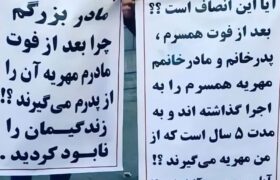 آیا این انصاف است ؟؟
بعد از فوت همسرم ،
پدرخانم و مادرخانمم
مهریه همسرم را به
اجرا گذاشته اند و به
مدت ۵ سال است که از
من مهریه می‌گیرند ؟!
مادر بزرگم
چرا بعد از فوت
مادرم مهریه آن را
از پدرم می‌گیرند ؟!
زندگیمان را
نابود کردید .